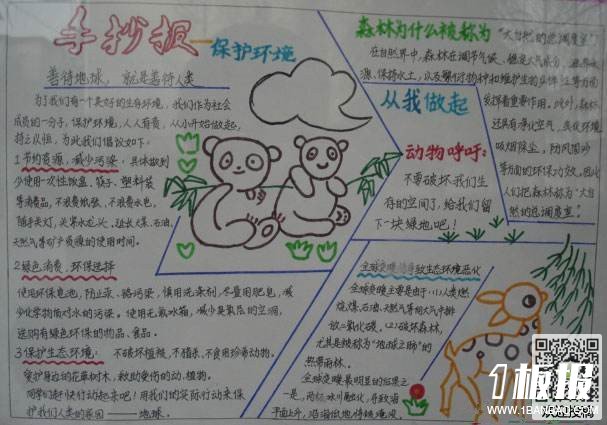 手抄报
保护环境
善待地球，就是善待人类
为了我们有一个美好的生存环境，我们作为社会
成员的一分子，保护环境，人人有责，从小开始做起，
持之以恒，为此我们倡议如下：
1节约资源，减少污染：具体做到
少使用一次性饭盒、筷子、塑料袋
等消费品，不浪费纸张，不浪费水电，
随手关灯，关紧水龙头，延长大煤、石油、
天然气等矿产资源的使用时间。
2绿色消费，环保选择
使用环保电池，防止汞、镉污染，慎用洗涤剂，尽量用肥皂，减
少化学物质对水的污染。使用无氟冰箱，减少臭氧的空洞，
选购有绿色环保的物品、食品。
3保护生态环境：不破坏植被，不猎杀、不食用珍希动物，
爱护身边的花草树木，救助受伤的动、植物。
同学们赶快行动起来吧！用我们的实际行动来保
护我们人类的家园——地球。
森林为什么被称为
“大自然的总调度室”
在自然界中，森林在调节气候、
源、保持水土，以及繁衍物种和维护生物
发挥着重要作用。此外，森林
还具有净化空气，美化环境
吸烟除尘，防风固沙
等方面的环保功效，因此
人们把森林称为“大自
然的总调度室”。
从我做起
动物呼吁：
不要破坏我们生
存的空间了，给我们留
下一块绿地吧！
全球变暖 致生态环境恶化
全球变暖主要是由于：(1)人类燃
烧煤、石油、天然气等向大气中排
放二氧化碳，(2)破坏森林，
尤其是被称为“地球之肺”的
热带雨林。
全球变暖最明显的后果之
一是，两极冰川融化，导致海
平面上升，沿海低地将被淹没。
1板报
WWW.1BANBAO.COM
欢迎投稿